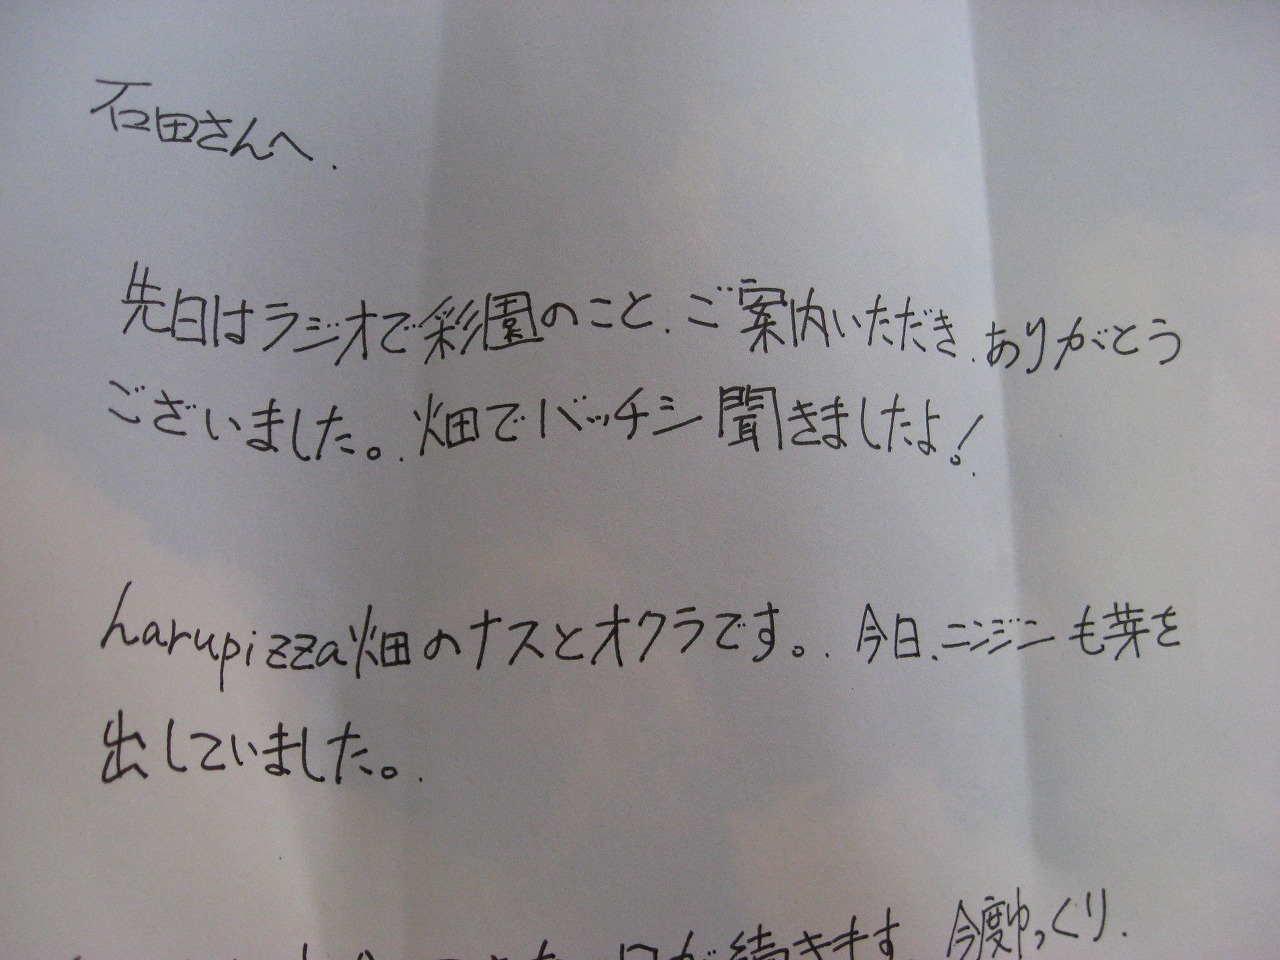 石田さんへ.
先日はラジオで彩園のこと、ご案内いただき、ありがとう
ございました。畑でバッチシ聞きましたよ!
harupizza畑のナスとオクラです。今日、ニンジンも芽を
出していました。
日が続きます 今度ゆっくり.